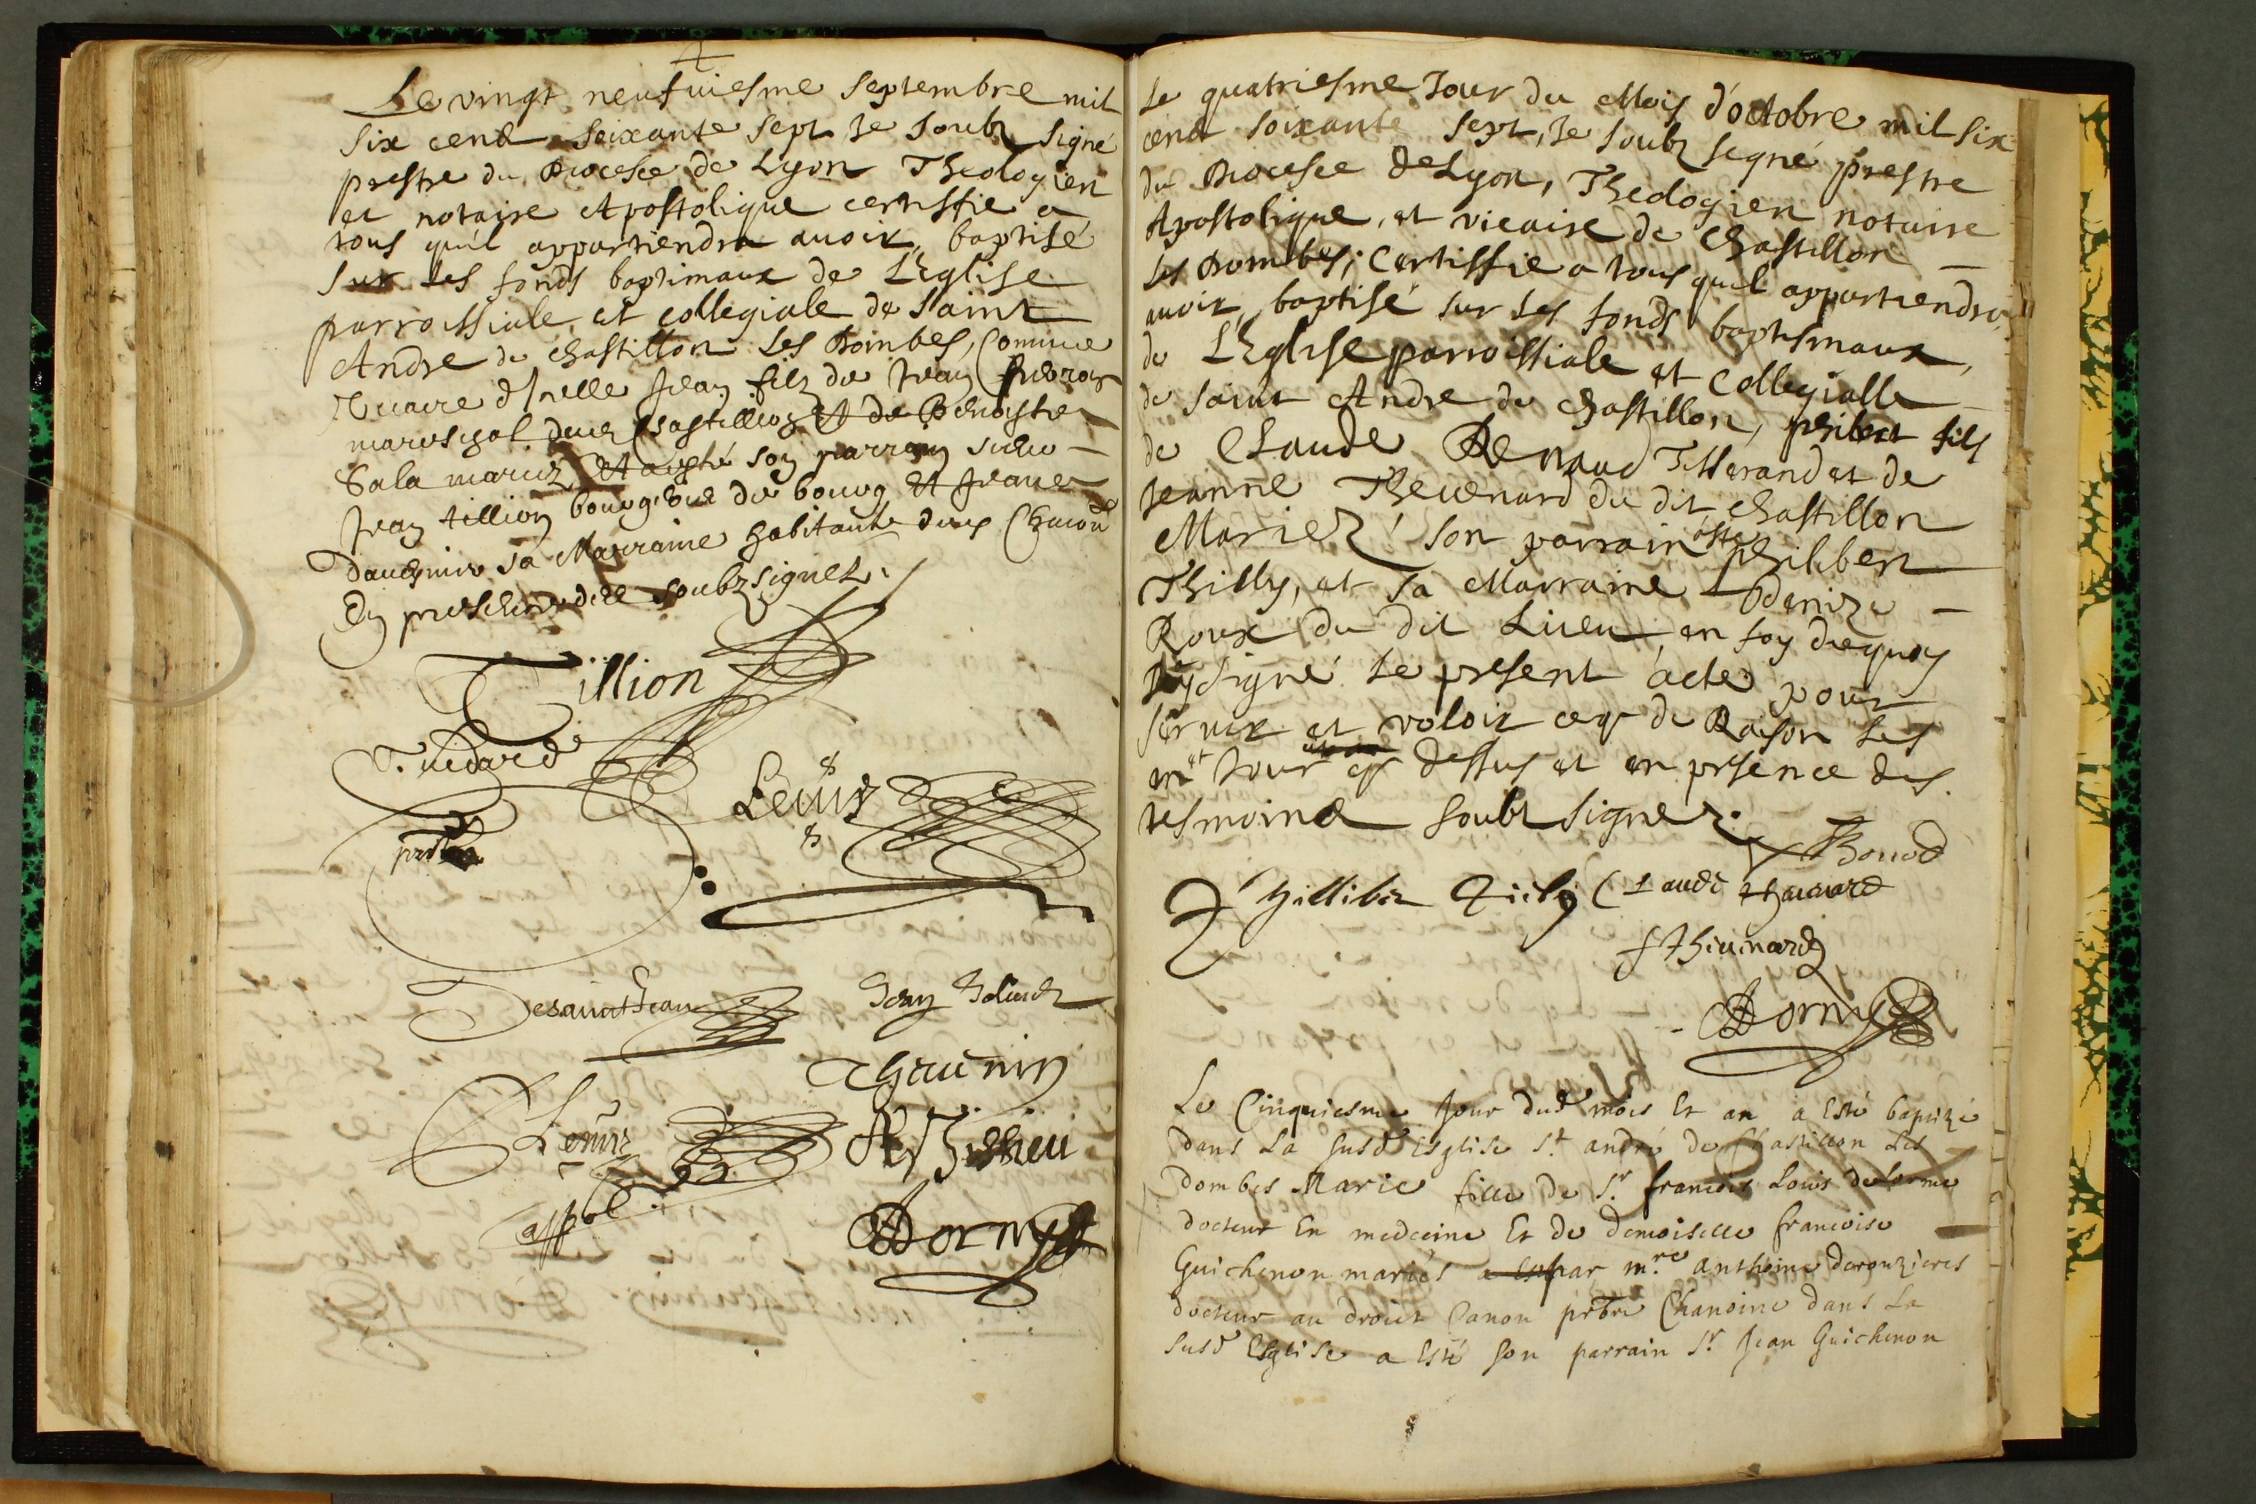 Le vingt neufuiesme septembre mil
six cend soixante sept Je soubz signé
prestre du Diocese de Lyon Theologien
et notaire Apostolique certiffie a
tous quil appartiendra auoir baptisé
sur les fonds baptimaux de L'Eglise
parroissiale et collegiale de saint
Andre de chastillon les Dombes, Comme
vicaire d'Icelle Jean filz de Jean
mareschal dud Chastillion Et de Benoiste
Sala mariez Et a esté son parrain sieur
Jean tillion bourgeois de bourg Et Jeanne
sa Marraine habitante dans
En presence des soubzsignez.
Tillion
Leuuz
Desainct Jean
Jean
Dormy
Le quatriesme Jour du Mois d'octobre mil six
cend soixante sept, Je soubz signé prestre
du Diocese de Lyon, Theologien notaire
Apostolique, et vicaire de Chastillon
les Dombes; certiffie a tous quil appartiendra
auoir baptisé sur les fonds baptismaux,
de L'Eglise parroissiale et Collegialle
de saint Andre de Chastillon, philibert fils
de Claude Renaud Tisserand et de
Jeanne Theuenard du dit Chastillon
Mariez son parrain a esté philibert
Thilly, et sa Marraine Denize
Roux du dit Lieu, en foy dequoy
J'ay signé le present acte pour
seruir et valoir ce que de Raison les
an et Jour que dessus et en presence des
tesmoins soubz signez.
Claude
Dormy
Le Cinquiesme Jour dud mois Et an a Esté baptizé
dans La susd Esglise St. andré de Chastillon Les
Dombes Marie fille de Sr. francois Louis delorme
docteur En medecine Et de demoiselle francoise
Guichenon mariés par mre anthoine derouzieres
docteur au droict Canon prbre Chanoine dans La
susd Esglise a Esté son parrain Sr. Jean Guichenon